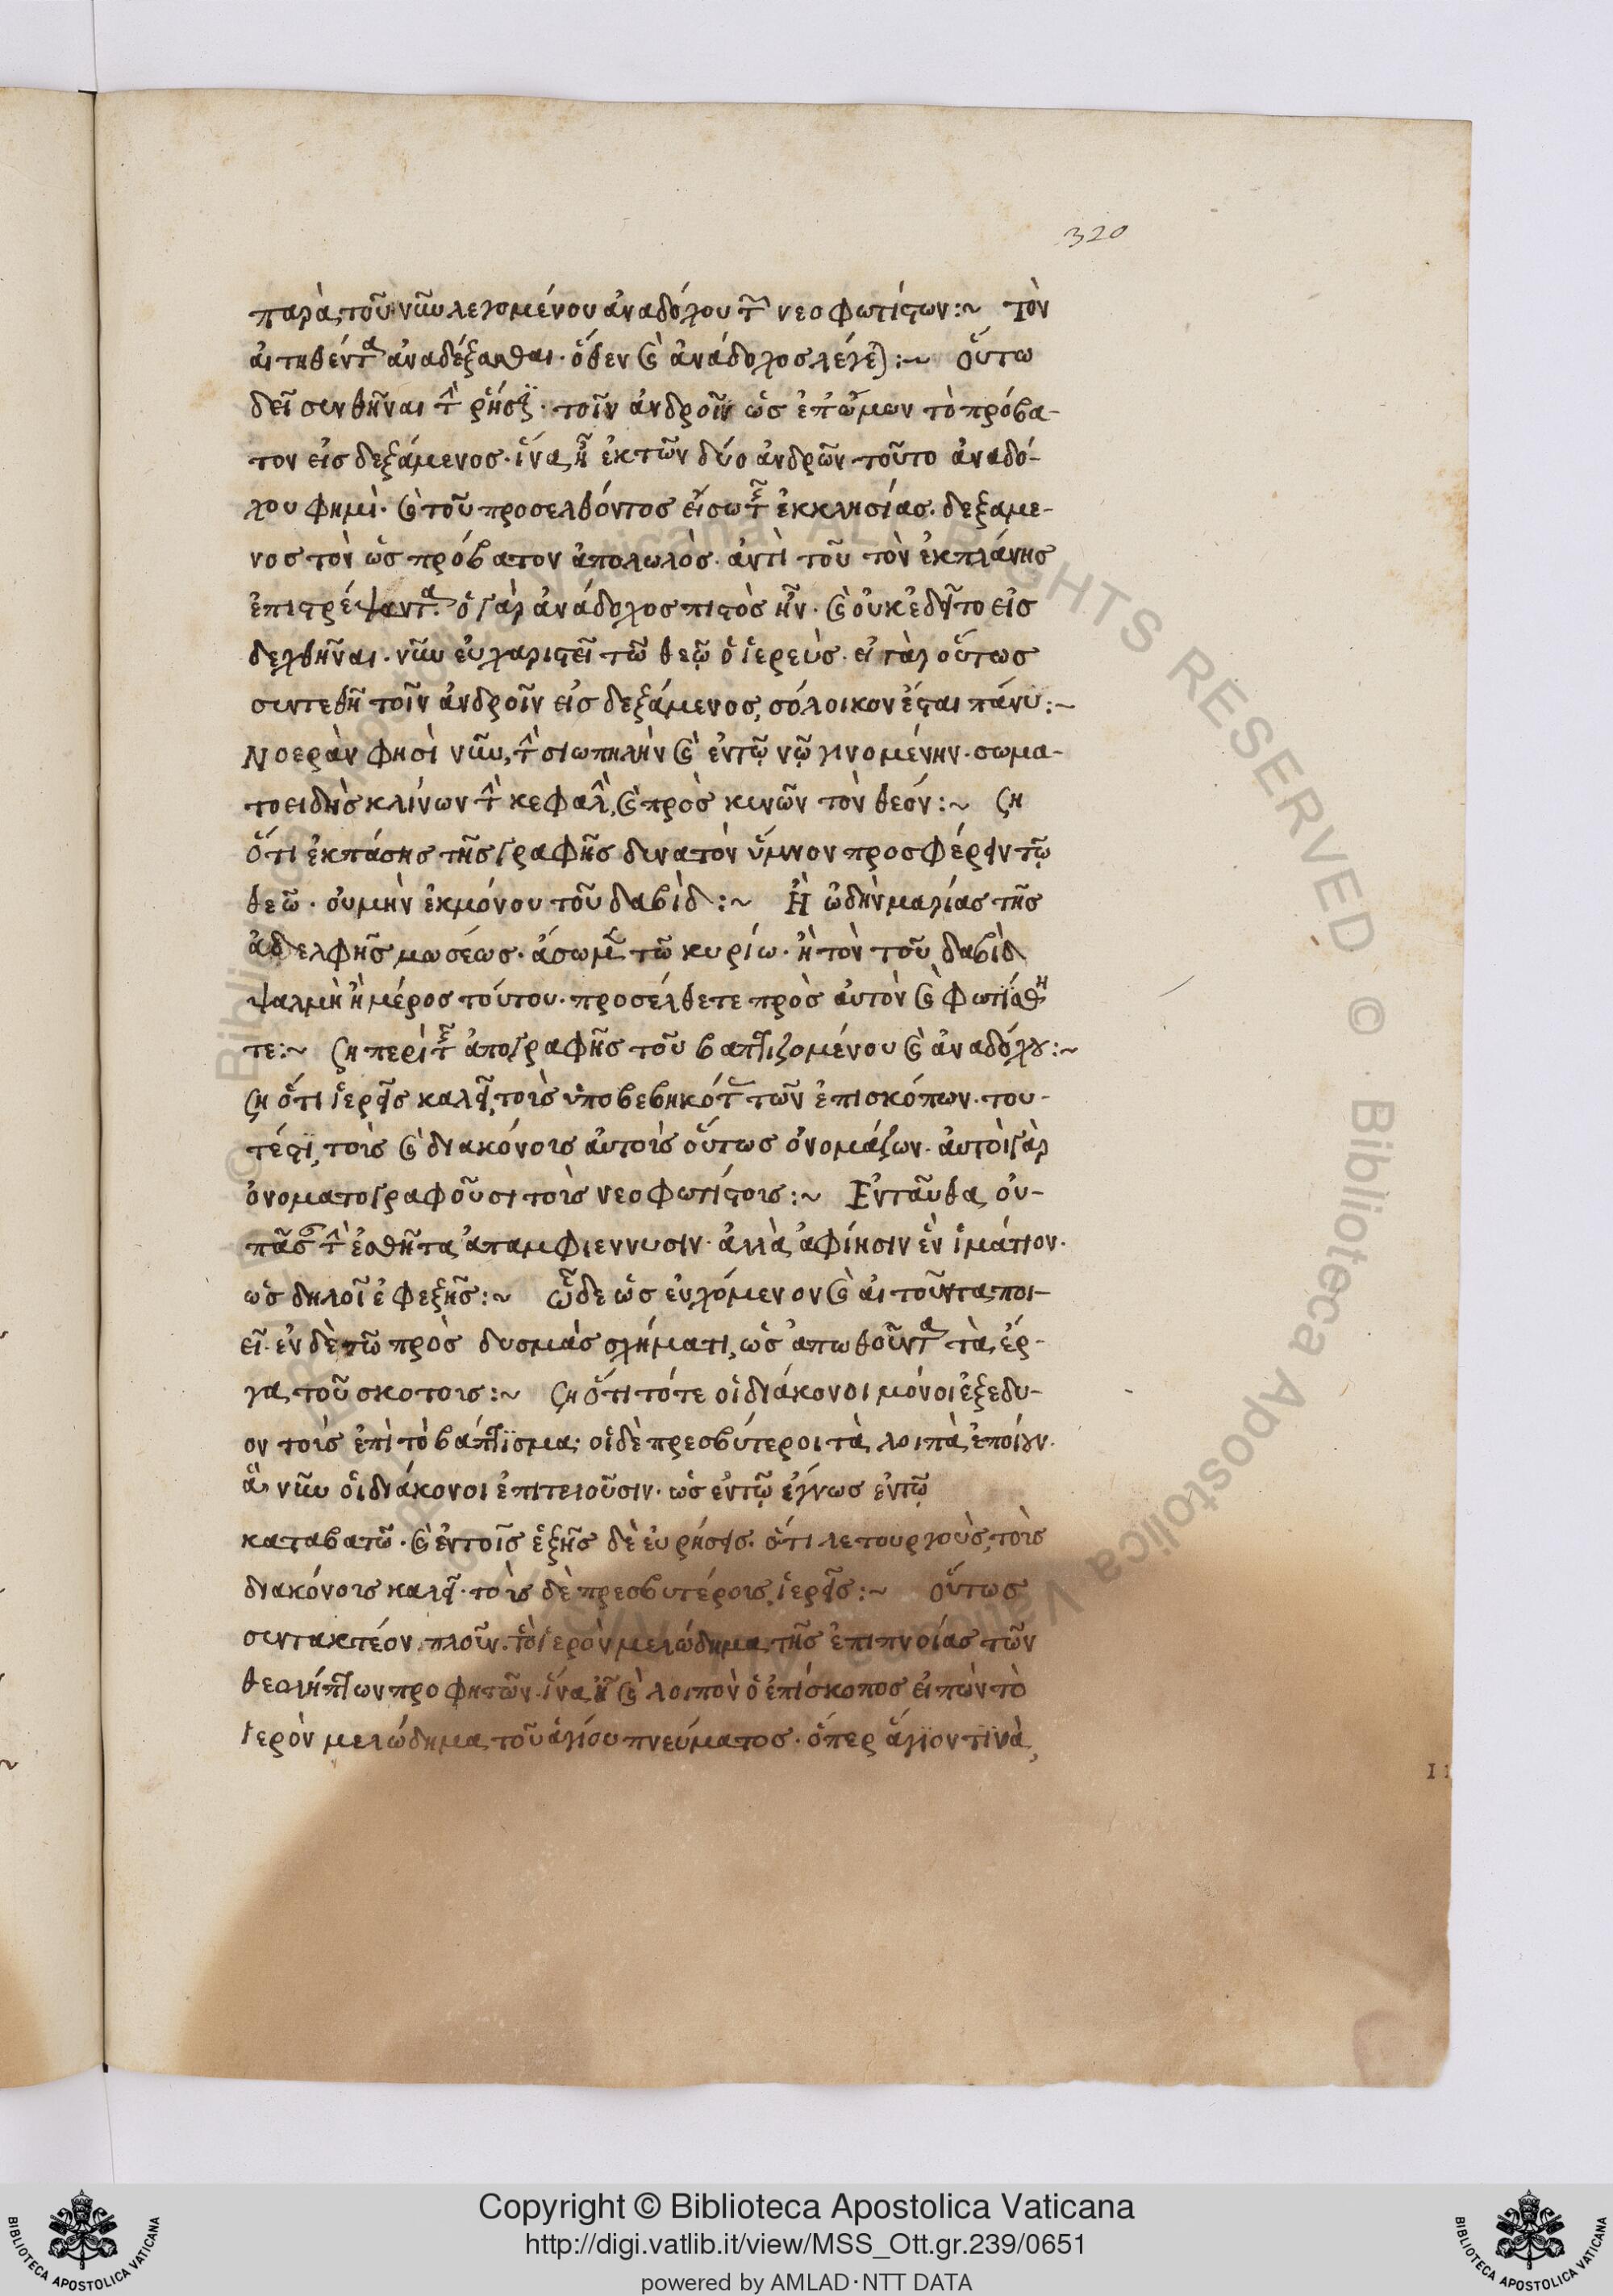 320
παρὰ τοῦ νῦν λεγομένου ἀναδόχου τῶν νεοφωτίστων:~ Τὸν
αἰτηθέντα ἀναδέξασθαι· ὅθεν καὶ ἀνάδοχος λέγεται:~ Οὕτω
δεῖ συνθῆναι τὴν ῥῆσιν· τοῖν ἀνδροῖν ὡς ἐπ' ὤμων τὸ πρόβα-
τον εἰσδεξάμενος· ἵνα ἦ ἐκ τῶν δύο ἀνδρῶν τοῦτο ἀναδό-
χου φημὶ· καὶ τοῦ προσελθόντος εἴσω τῆς ἐκκλησίας· δεξάμε-
νος τὸν ὡς πρόβατον ἀπολωλὸς· ἀντὶ τοῦ τὸν ἐκ πλάνης
ἐπιστρέψαντα· ὁ γὰρ ἀνάδοχος πιστὸς ἦν· καὶ οὐκ ἐδεῖτο εἰσ
δεχθῆναι· νῦν εὐχαριστεῖ τῶ θεῷ ὁ ἱερεὺς· εἰ γὰρ οὕτως
συντεθῆ τοῖν ἀνδροῖν εἰσδεξάμενος, σόλοικον ἔσται πάνυ:~
Νοερὰν φησὶ νῦν, τὴν σιωπηλὴν καὶ ἐν τῷ νῷ γινομένην· σωμα-
τοειδὴς κλίνων τὴν κεφαλὴν, καὶ προσκυνῶν τὸν θεόν:~ ση
ὅτι ἐκ πάσης τῆς γραφῆς δυνατὸν ὕμνον προσφέρειν τῷ
θεῶ· οὐ μὴν ἐκ μόνου τοῦ δαβὶδ:~ Ἢ ὠδὴν μαρίας τῆς
ἀδελφῆς μωσέως· ἄσωμεν τῶ κυρίω· ἢ τὸν τοῦ δαβὶδ
ψαλμὴ ἢ μέρος τούτου· προσέλθετε πρὸς αὐτὸν καὶ φωτίσθη
τε:~ ση περὶ τῆς ἀπογραφῆς τοῦ βαπτιζομένου καὶ ἀναδόχου:~
ση ὅτι ἱερεῖς καλεῖ, τοὺς ὑποβεβηκότας τῶν ἐπισκόπων· του-
τέστι, τοὺς καὶ διακόνους αὐτοὺς οὕτως ὀνομάζων· αὐτοὶ γὰρ
ὀνοματογραφοῦσι τοὺς νεοφωτίστους:~ Ἐνταῦθα, οὐ-
πᾶσαν τὴν ἐσθῆτα ἀπαμφιεννυσιν· ἀλλὰ ἀφίησιν ἓν ἱμάτιον·
ὡς δηλοῖ ἐφεξῆς:~ Ὧδε ὡς εὐχόμενον καὶ αἰτοῦντα ποι-
εῖ· ἐν δὲ τῶ πρὸς δυσμὰς σχήματι, ὡς ἀπωθοῦντα τὰ ἔρ-
γα τοῦ σκοτους:~ ση ὅτι τότε οἱ διάκονοι μόνοι ἐξεδυ-
ον τοὺς ἐπὶ τὸ βάπτισμα· οἱ δὲ πρεσβύτεροι τὰ λοιπὰ ἐποίουν·
ἃ νῦν οἱ διάκονοι ἐπιτελοῦσιν· ὡς ἐν τῷ ἔγνως ἐν τῷ
καταβατῶ· καὶ ἐν τοῖς ἑξῆς δὲ εὑρήσεις· ὅτι λετουργοὺς, τοὺς
διακόνους καλεῖ· τοὺς δὲ πρεσβυτέρους, ἱερεῖς:~ οὕτως
συντακτέον πλοῦν· τὸ ἱερὸν μελώδημα τῆς ἐπιπνοίας τῶν
θεολήπτων προφητῶν· ἵνα ἦ καὶ λοιπὸν ὁ ἐπίσκοπος εἰπὼν τὸ
ἱερὸν μελώδημα τοῦ ἁγίου πνεύματος· ὅπερ ἅγιον τινὰ,
Copyright © Biblioteca Apostolica Vaticana
http://digi.vatlib.it/view/MSS_Ott.gr.239/0651
powered by AMLAD·NTT DATA